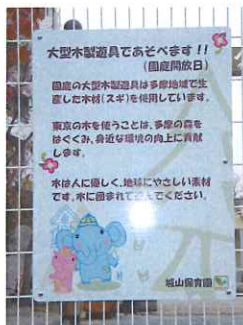 大型木製遊具であそべます!!
(園庭開放日)
園庭の大型木製遊具は多摩地域で生
産した木材(スギ)を使用しています。
東京の木を使うことは、多摩の森を
はぐくみ、身近な環境の向上に貢献
します。
木は人に優しく、地球にやさしい素材
です。木に囲まれて遊んでください。
城山保育園